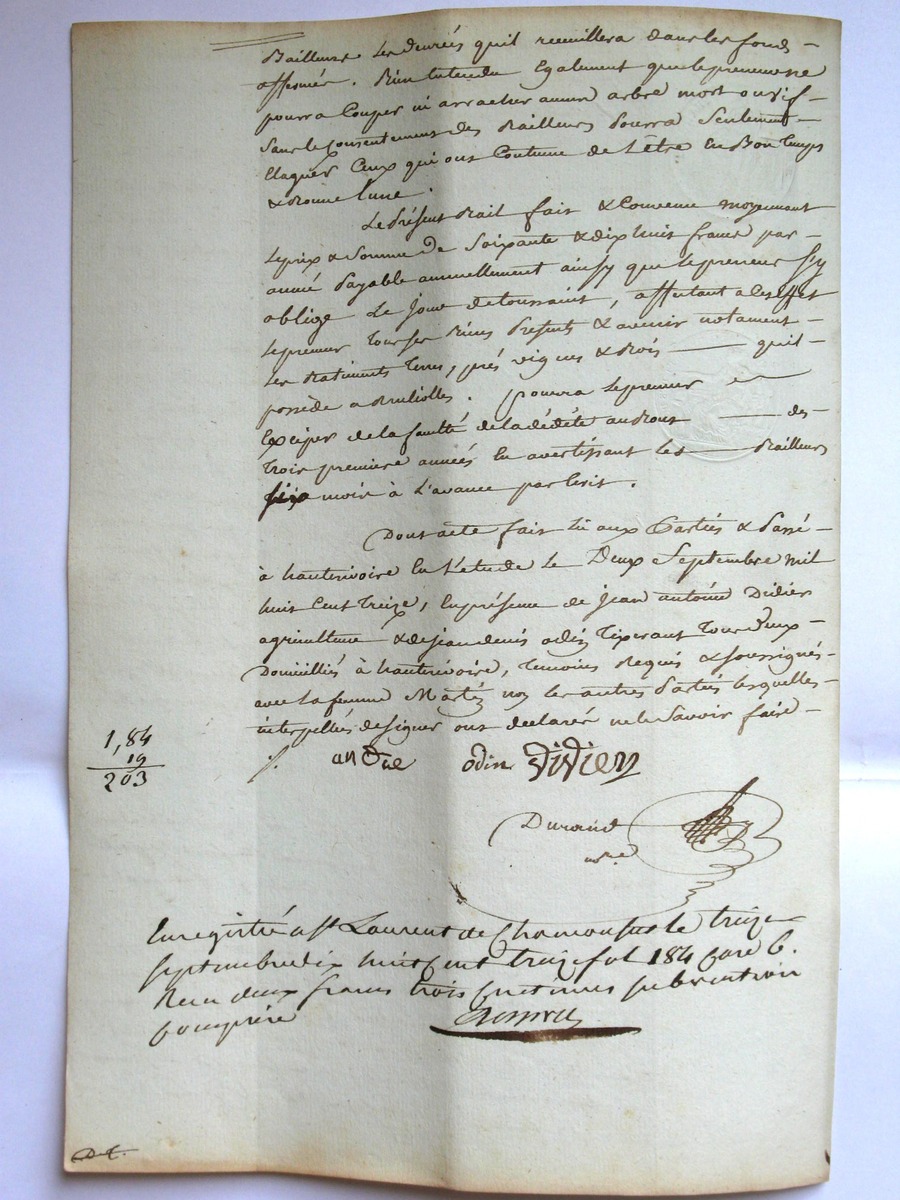 Bailleurs les denrées quil recueillera dans les fonds
affermés. Bien Entendu Egalement que le preneur ne
pourra Couper ni arracher aucun arbre mort ou vif
Sans le Consentement des Bailleurs pourra Seulement
Elaguer Ceux qui ont Coutume de l'être En Bon temps
& Bonne lune.
Le Présent Bail fait & Convenu moyennant
le prix & Somme de Soixante & dix huit francs par
année payable annuellement ainsy que le preneur sy
oblige Le jour de toussaint, affectant a cet effet
le preneur tous ses Biens Presents & avenir notament
les Batiments terres, prés vignes & Bois quil
possède a Brulliolles. pourra le preneur
Exciper de la faculté de la dédite au Bout des
trois premiere années En avertissant les Bailleurs
six mois à L'avance par Ecrit.
Dont acte fait lû aux Parties & Passé
à hauterivoire En L'etude le Deux Septembre mil
huit Cent treize, En présence de jean antoine Didier
agriculteur & de jean denis odin tixerant tous deux
Domiciliés à hauterivoire, temoins Requis & soussignés
avec la femme non les autres Parties lesquelles
interpellés de signer ont declaré ne le Savoir faire
andre odin Didier
1,84
19
203
Durand
n.re
Enregistré a St Laurent de Chamousset le treize
septembre dix huit Cent treize fol 184 Case 6.
Recu deux francs trois centimes subvention
comprise
D.t.